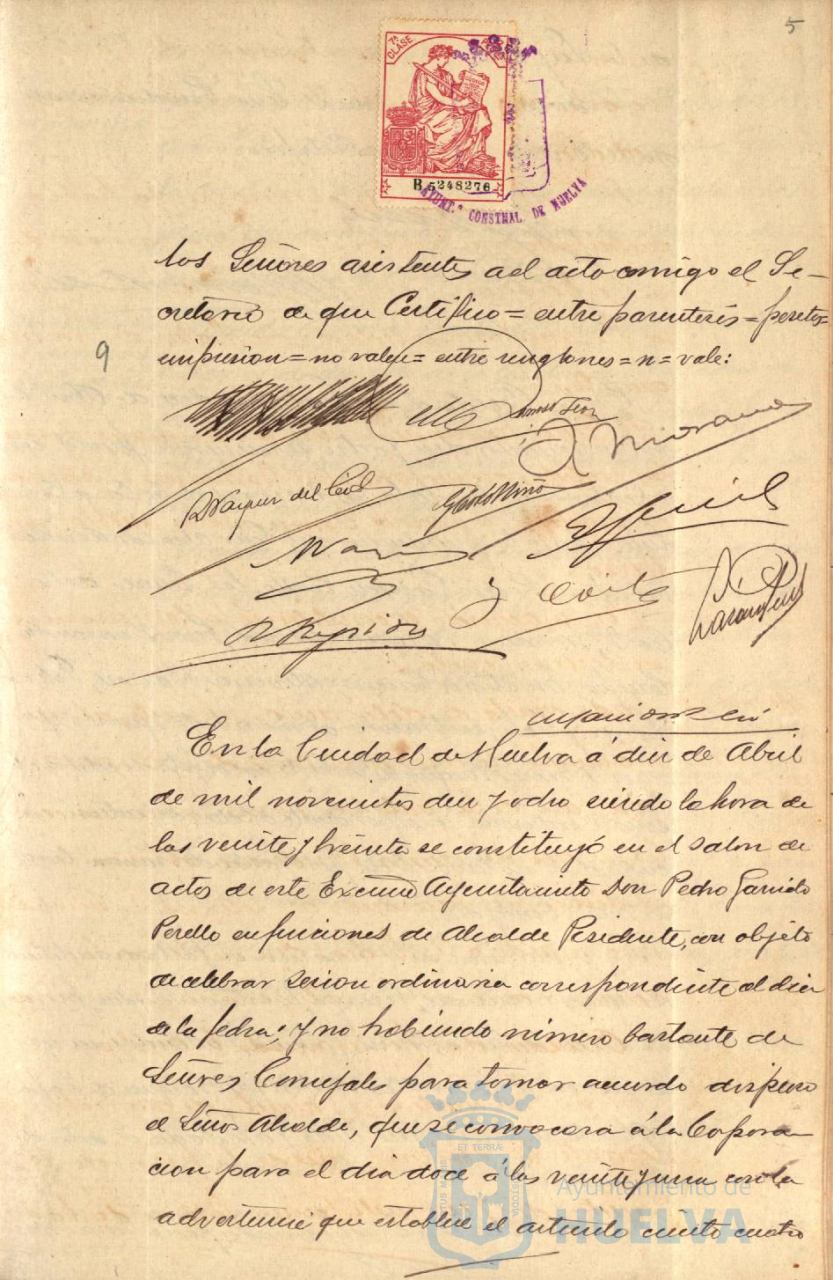 5
7ª CLASE
B5248276
AYUNT.º CONSTNAL DE HUELVA
los Señores asistentes al acto comigo el Se-
cretario de que Certifico = entre parentesis = pereto =
impresion = no vale = entre renglones = n = vale:
9
A Morano
Vazquez del Cid
y Coito
En la Ciudad de Huelva á diez de Abril
de mil novecientos diez y ocho siendo la hora de
las veinte y treinta se constituyó en el salon de
actos de este Excmo Ayuntamiento Don Pedro Garrido
Perello en funciones de Alcalde Presidente, con objeto
de celebrar sesion ordinaria correspondiente al dia
de la fecha; y no habiendo número bastante de
Señores Concejales para tomar acuerdo dispuso
el Señor Alcalde, que se convocara á la Corpora-
cion para el dia doce á las veinte y una con la
advertencia que establece el articulo ciento cuatro
ET TERRÆ
Ayuntamiento de
HUELVA